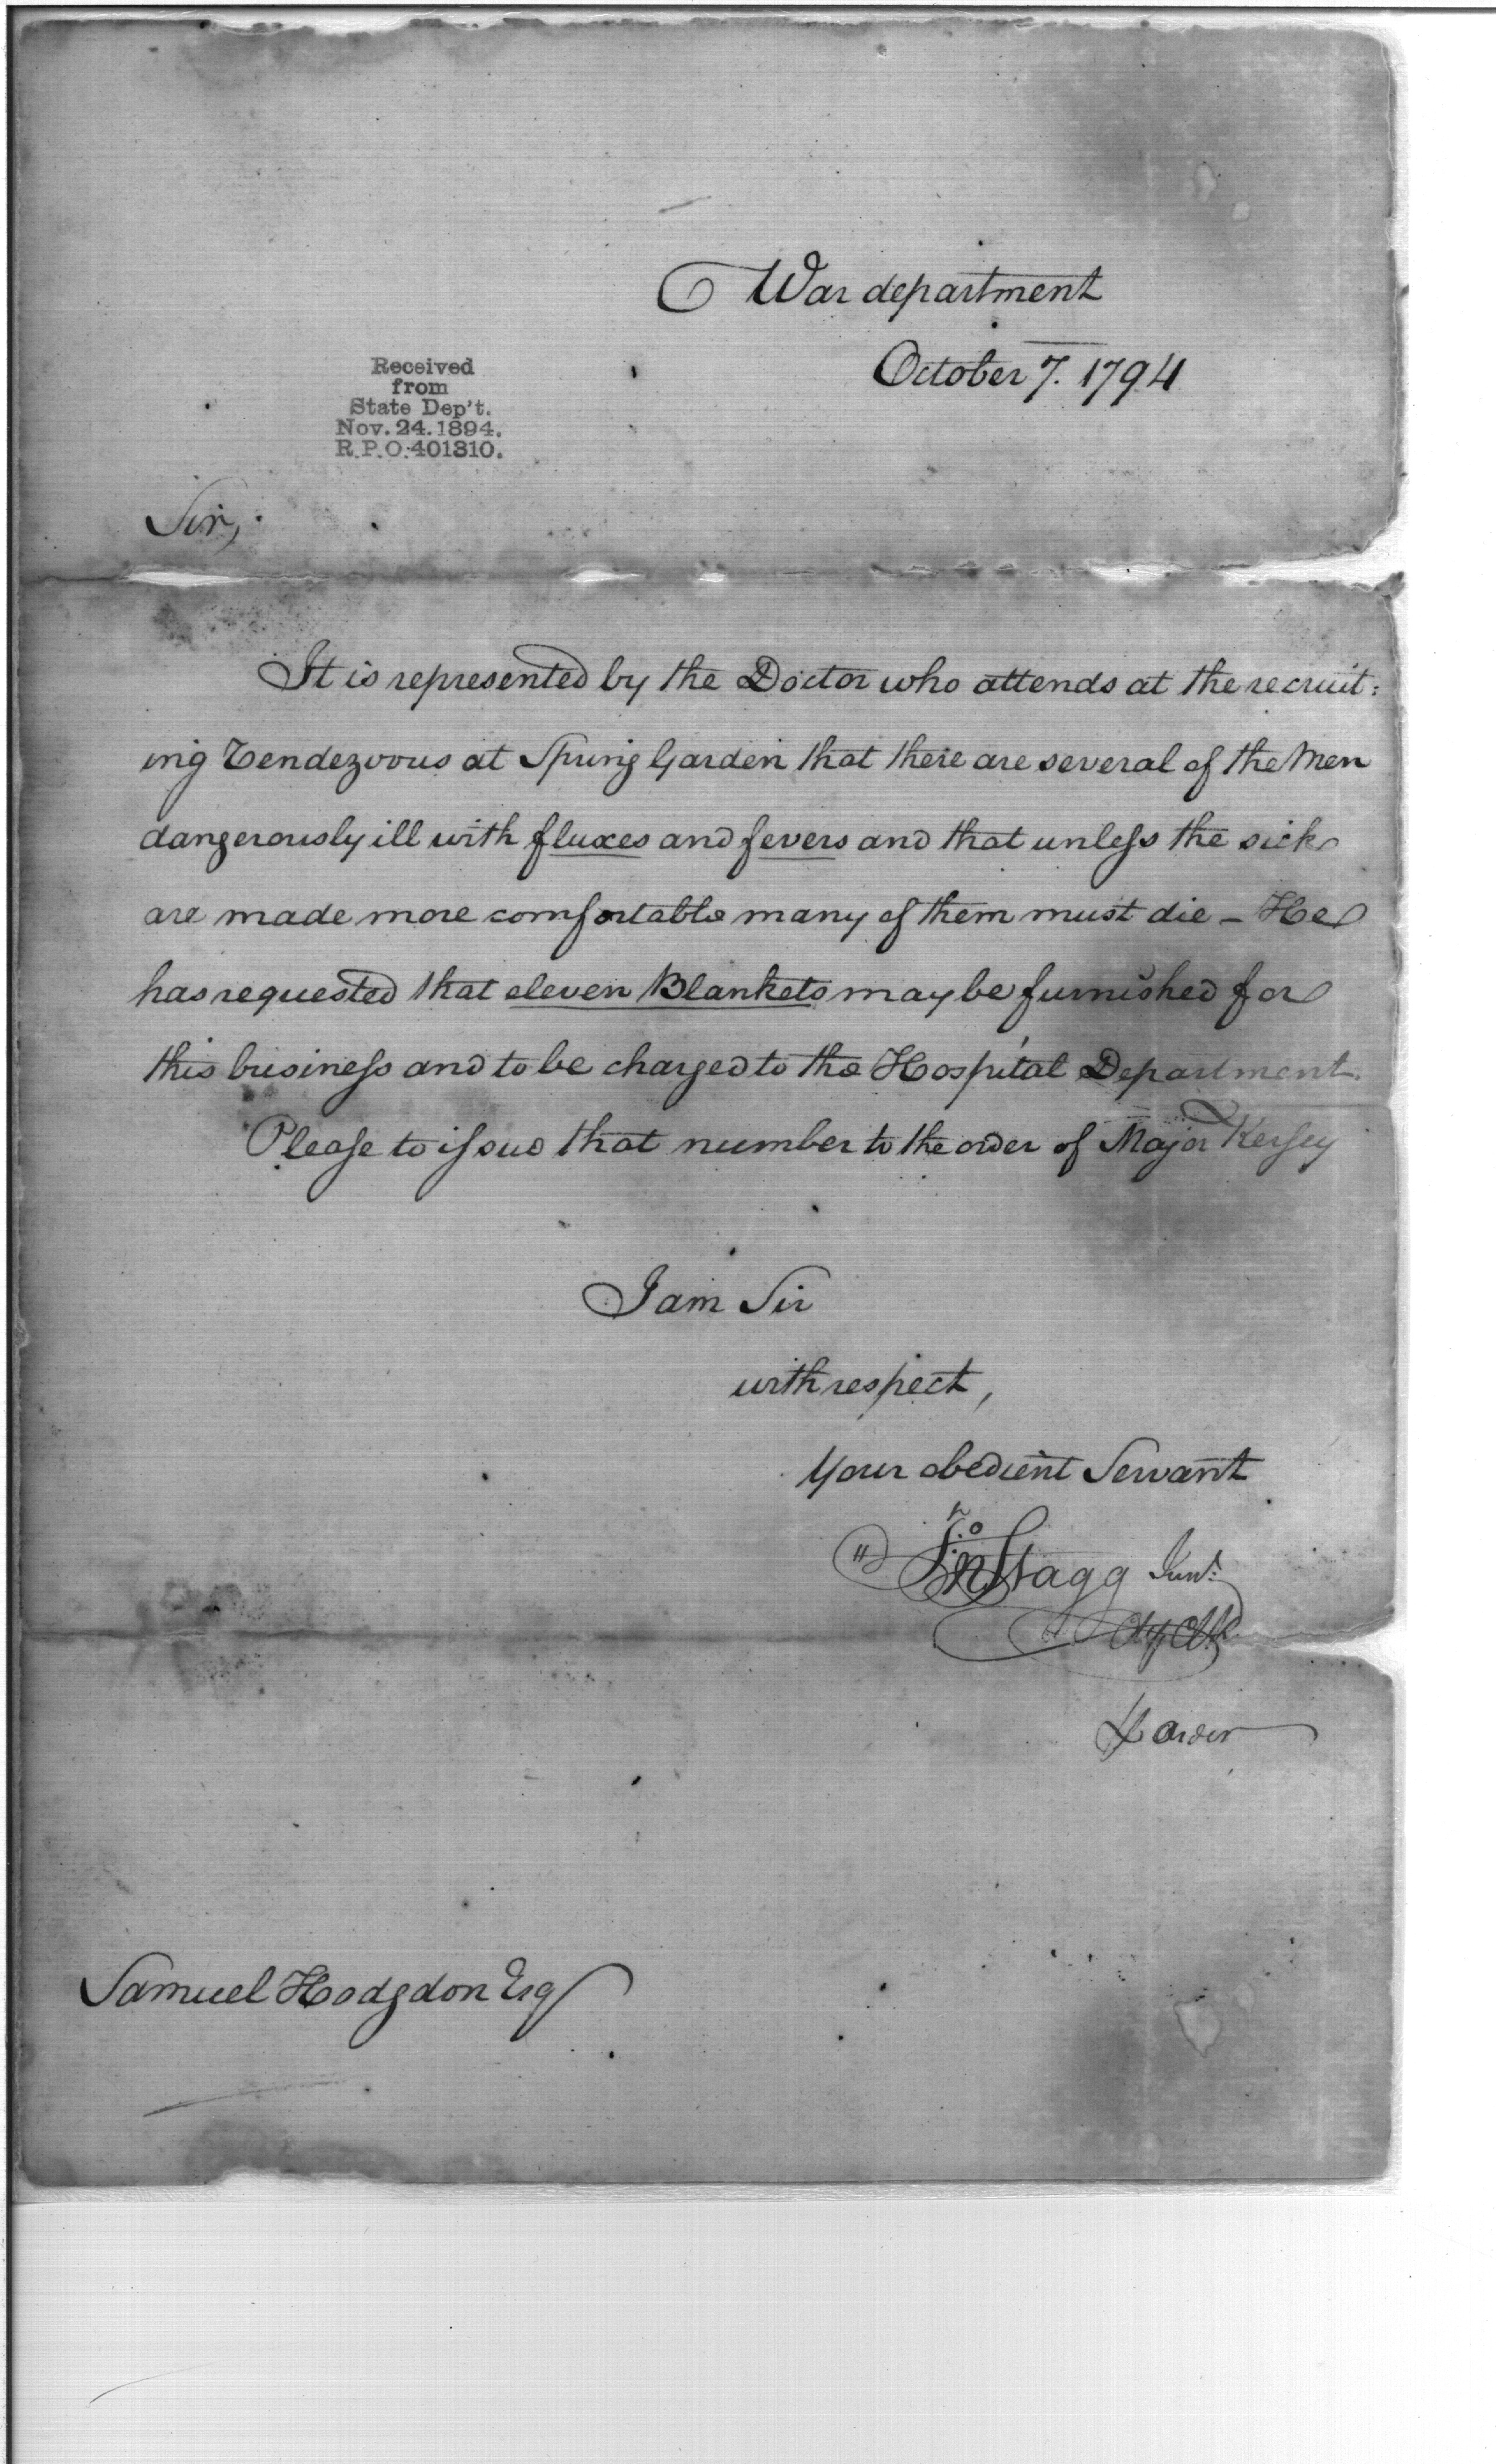 War department
October 7. 1794
Received
from
State Dep't.
Nov. 24. 1894.
R.P.O. 401310.
Sir,
It is represented by the Doctor who attends at the recruit:
ing Rendezvous at Spring Garden that there are several of the Men
dangerously ill with fluxes and fevers and that unless the sick
are made more comfortable many of them must die - He
has requested that eleven Blankets may be furnished for
this business and to be charged to the Hospital Department.
Please to issue that number to the order of Major Kersey
I am Sir
with respect,
Your obedient Servant
Jno Stagg Junr.
order
Samuel Hodgdon Esq